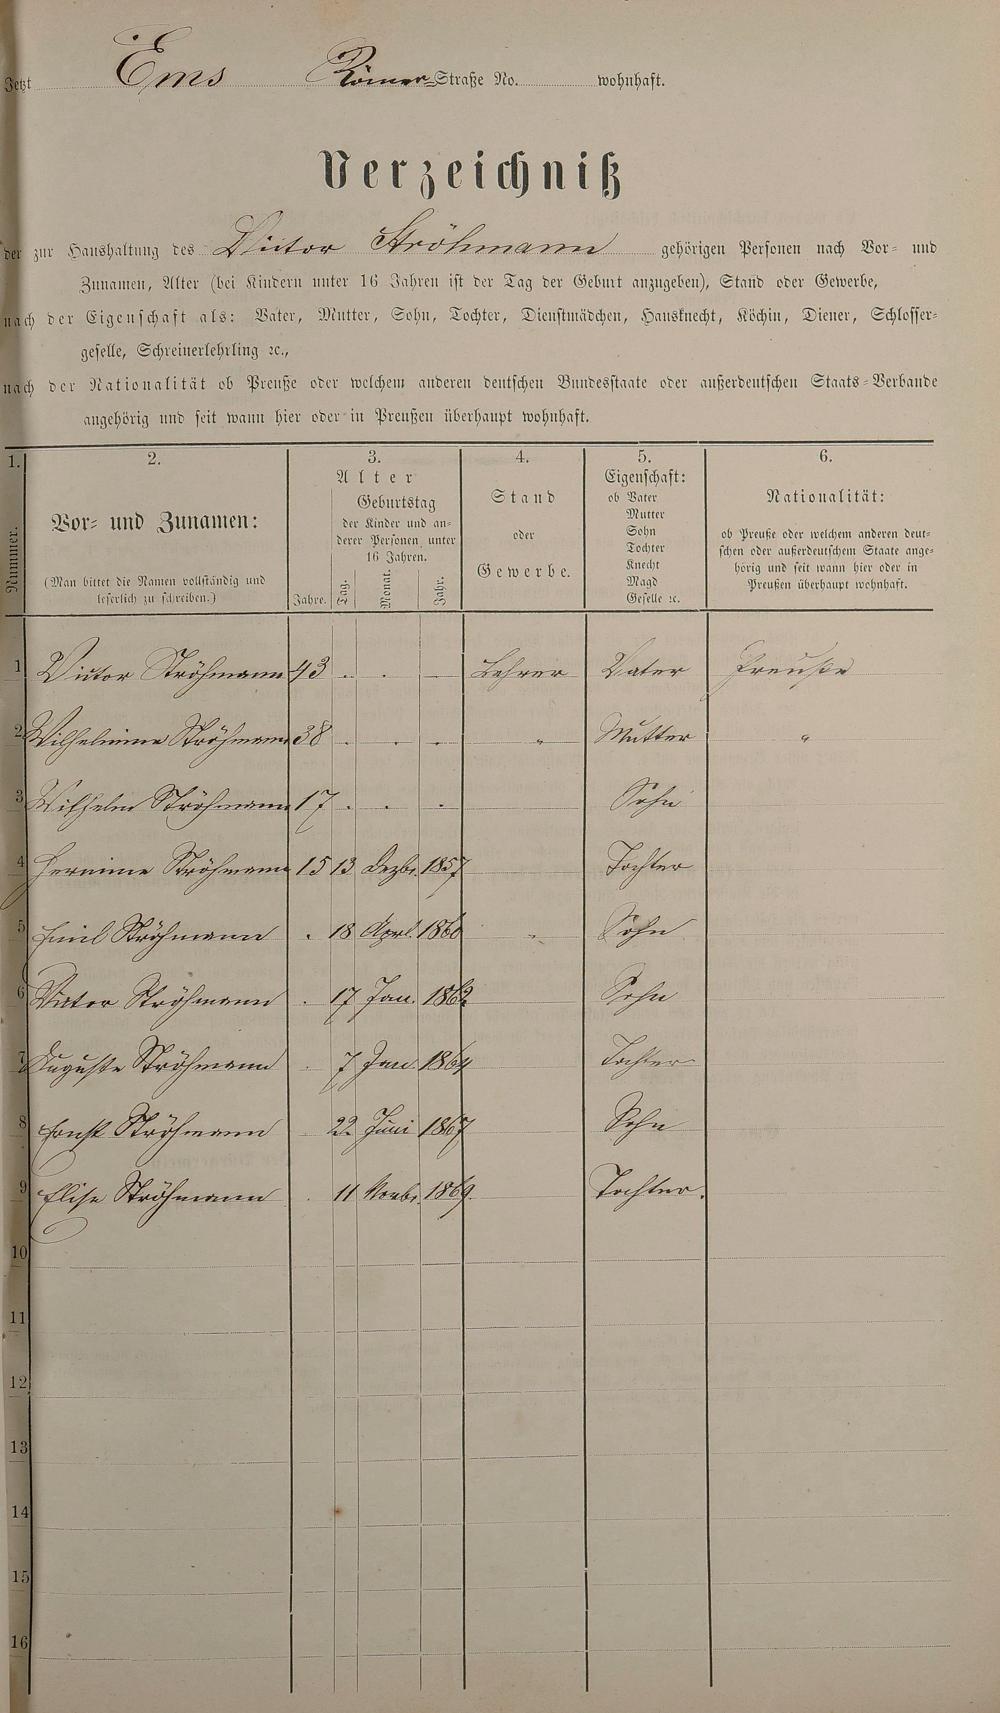 Jetzt Ems Römer-Straße No. wohnhaft.
Verzeichniß
der zur Haushaltung des Victor Ströhmann gehörigen Personen nach Vor- und
Zunamen, Alter (bei Kindern unter 16 Jahren ist der Tag der Geburt anzugeben), Stand oder Gewerbe,
nach der Eigenschaft als: Vater, Mutter, Sohn, Tochter, Dienstmädchen, Hausknecht, Köchin, Diener, Schlosser-
geselle, Schreinerlehrling ꝛc.,
nach der Nationalität ob Preuße oder welchem anderen deutschen Bundesstaate oder außerdeutschen Staats-Verbande
angehörig und seit wann hier oder in Preußen überhaupt wohnhaft.
1. 2. 3. 4. 5. 6.
Nummer.
Vor- und Zunamen:
(Man bittet die Namen vollständig und
leserlich zu schreiben.)
Alter
Geburtstag
der Kinder und an-
derer Personen unter
16 Jahren.
Jahre. Tag. Monat. Jahr.
Stand
oder
Gewerbe.
Eigenschaft:
ob Vater
Mutter
Sohn
Tochter
Knecht
Magd
Geselle ꝛc.
Nationalität:
ob Preuße oder welchem anderen deut-
schen oder außerdeutschem Staate ange-
hörig und seit wann hier oder in
Preußen überhaupt wohnhaft.
1 Victor Ströhmann 43 . . — Lehrer Vater Preuße
2 Wilhelmine Ströhmann 38 . . . " Mutter "
3 Wilhelm Ströhmann 17 . . . Sohn
4 Hermine Ströhmann 15 13 Dezbr. 1857 Tochter
5 Emil Ströhmann . 18 Aprl. 1860 Sohn
6 Victor Ströhmann . 17 Jan. 1862 Sohn
7 Auguste Ströhmann . 7 Jan. 1864 Tochter
8 Ernst Ströhmann 22 Juni 1867 Sohn
9 Elise Ströhmann . 11 Novbr. 1869. Tochter.
10
11
12
13
14
15
16